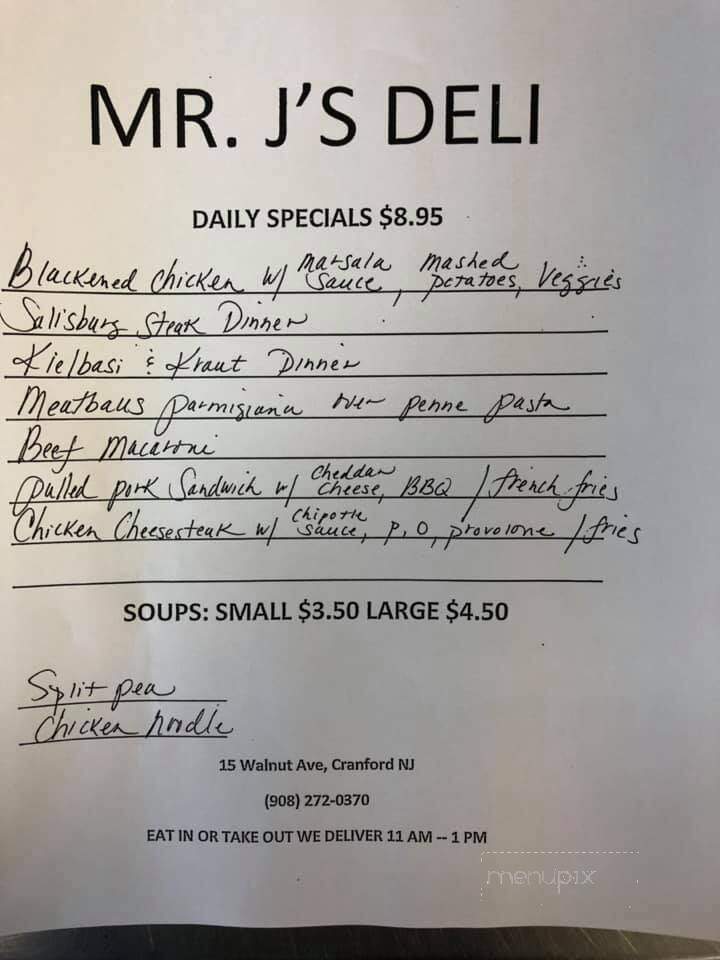 MR. J'S DELI
DAILY SPECIALS $8.95
Blackened Chicken w/ marsala sauce, mashed potatoes, Veggies
Salisburg Steak Dinner
Kielbasi & Kraut Dinner
Meatballs parmigiana over penne pasta
Beef Macaroni
Pulled pork Sandwich w/ cheddar cheese, BBQ / french fries
Chicken Cheesesteak w/ chipotle sauce, P, O, provolone / fries
SOUPS: SMALL $3.50 LARGE $4.50
Split pea
Chicken noodle
15 Walnut Ave, Cranford NJ
(908) 272-0370
EAT IN OR TAKE OUT WE DELIVER 11 AM -- 1 PM
menupix